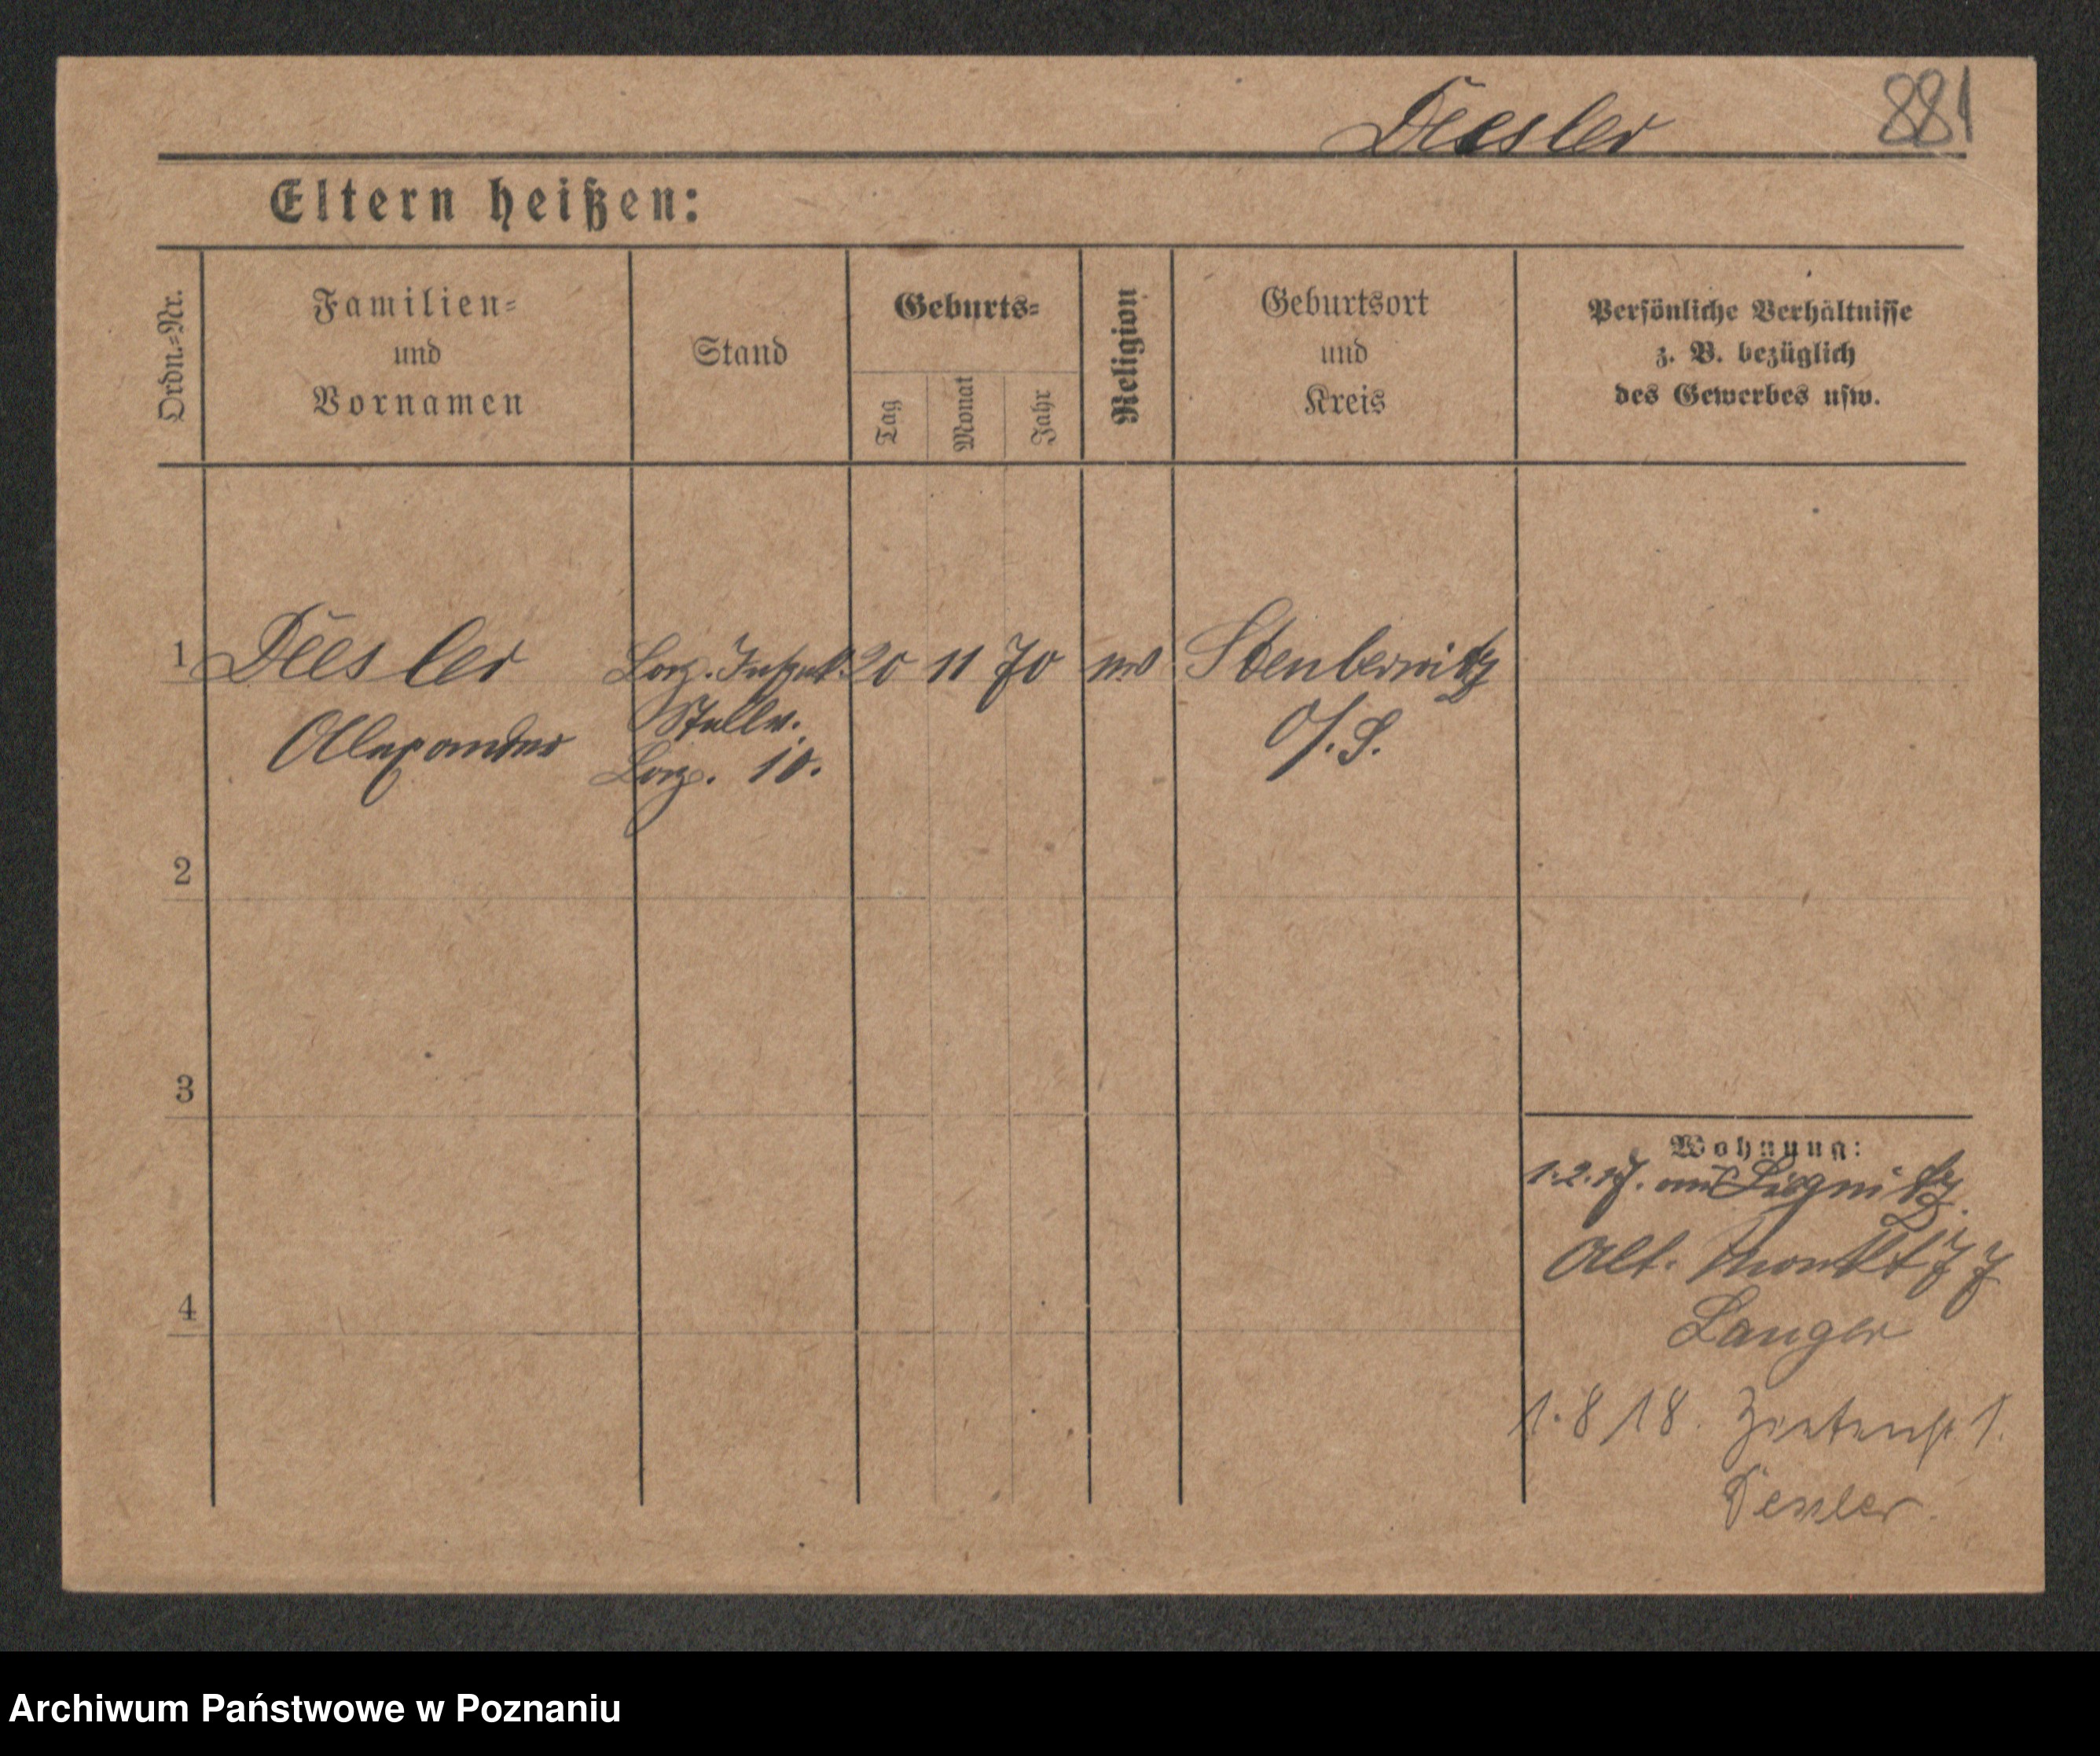 881
Eltern heißen:
Ordn.-Nr.
Familien-
und
Vornamen
Stand
Geburts-
Tag
Monat
Jahr
Religion
Geburtsort
und
Kreis
Persönliche Verhältnisse
z. B. bezüglich
des Gewerbes usw.
1
Alexander
Laz. Inspekt.
Stellv.
Laz. 10.
20 11 70
O/.S.
2
3
4
Wohnung:
1.2.17. aus Liegnitz
Alt. Markt 77
Langer
1.8 18. Zietenstr 1.
Archiwum Państwowe w Poznaniu